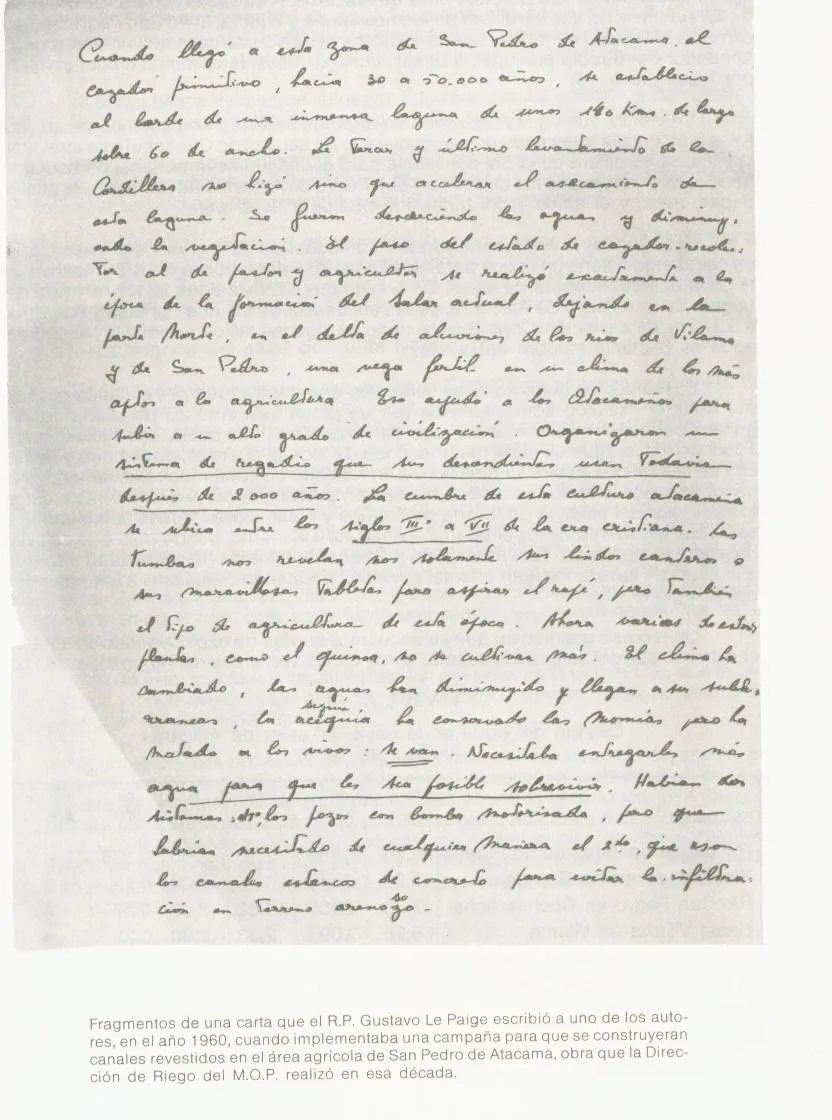 Cuando llegó a esta zona de San Pedro de Atacama, el
cazador primitivo, hacia 30 a 50.000 años, se establecio
al borde de una inmensa laguna de unos 180 Kms. de largo
sobre 60 de ancho. El Tercer y último levantamiento de la
Cordillera no hizó sino que accelerar el asecamiento de
esta laguna. Se fueron desdeciendo las aguas y diminuy-
endo la vegetación. El paso del estado de cazador-recolec-
Tor al de pastor y agricultor se realizó exactamente a la
época de la formación del Salar actual, dejando en la
parte Norte, en el delta de aluviones de los rios de Vilama
y de San Pedro, una vega fertil en un clima de los más
aptos a la agricultura Eso ayudó a los Atacameños para
subir a un alto grado de civilización. Organizaron un
sistema de regadio que sus descendientes usan Todavia
después de 2000 años. La cumbre de esta cultura atacameña
se ubica entre los siglos III° a VII de la era cristiana. Las
Tumbas nos revelan nos solamente sus lindos cantaros o
sus maravillosas Tabletas para aspirar el rapé, pero También
el Tipo de agricultura de esta época. Ahora varias de estas
plantas, como el quinoa, no se cultivan más. El clima ha
cambiado, las aguas han diminuyido y llegan a ser subte-
rraneas, la acequia sequia ha conservado las Momias pero ha
matado a los vivos: se van. Necesitaba entregarles más
agua para que les sea posible sobrevivir. Habian dos
sistemas: los pozos con bomba motorisada, pero que
habrian necesitado de cualquier manera el 2do, que eson
los canales estancos de concreto para evitar la infiltra-
ción en Terreno arenozo so.
Fragmentos de una carta que el R.P. Gustavo Le Paige escribió a uno de los auto-
res, en el año 1960, cuando implementaba una campaña para que se construyeran
canales revestidos en el área agrícola de San Pedro de Atacama, obra que la Direc-
ción de Riego del M.O.P. realizó en esa década.